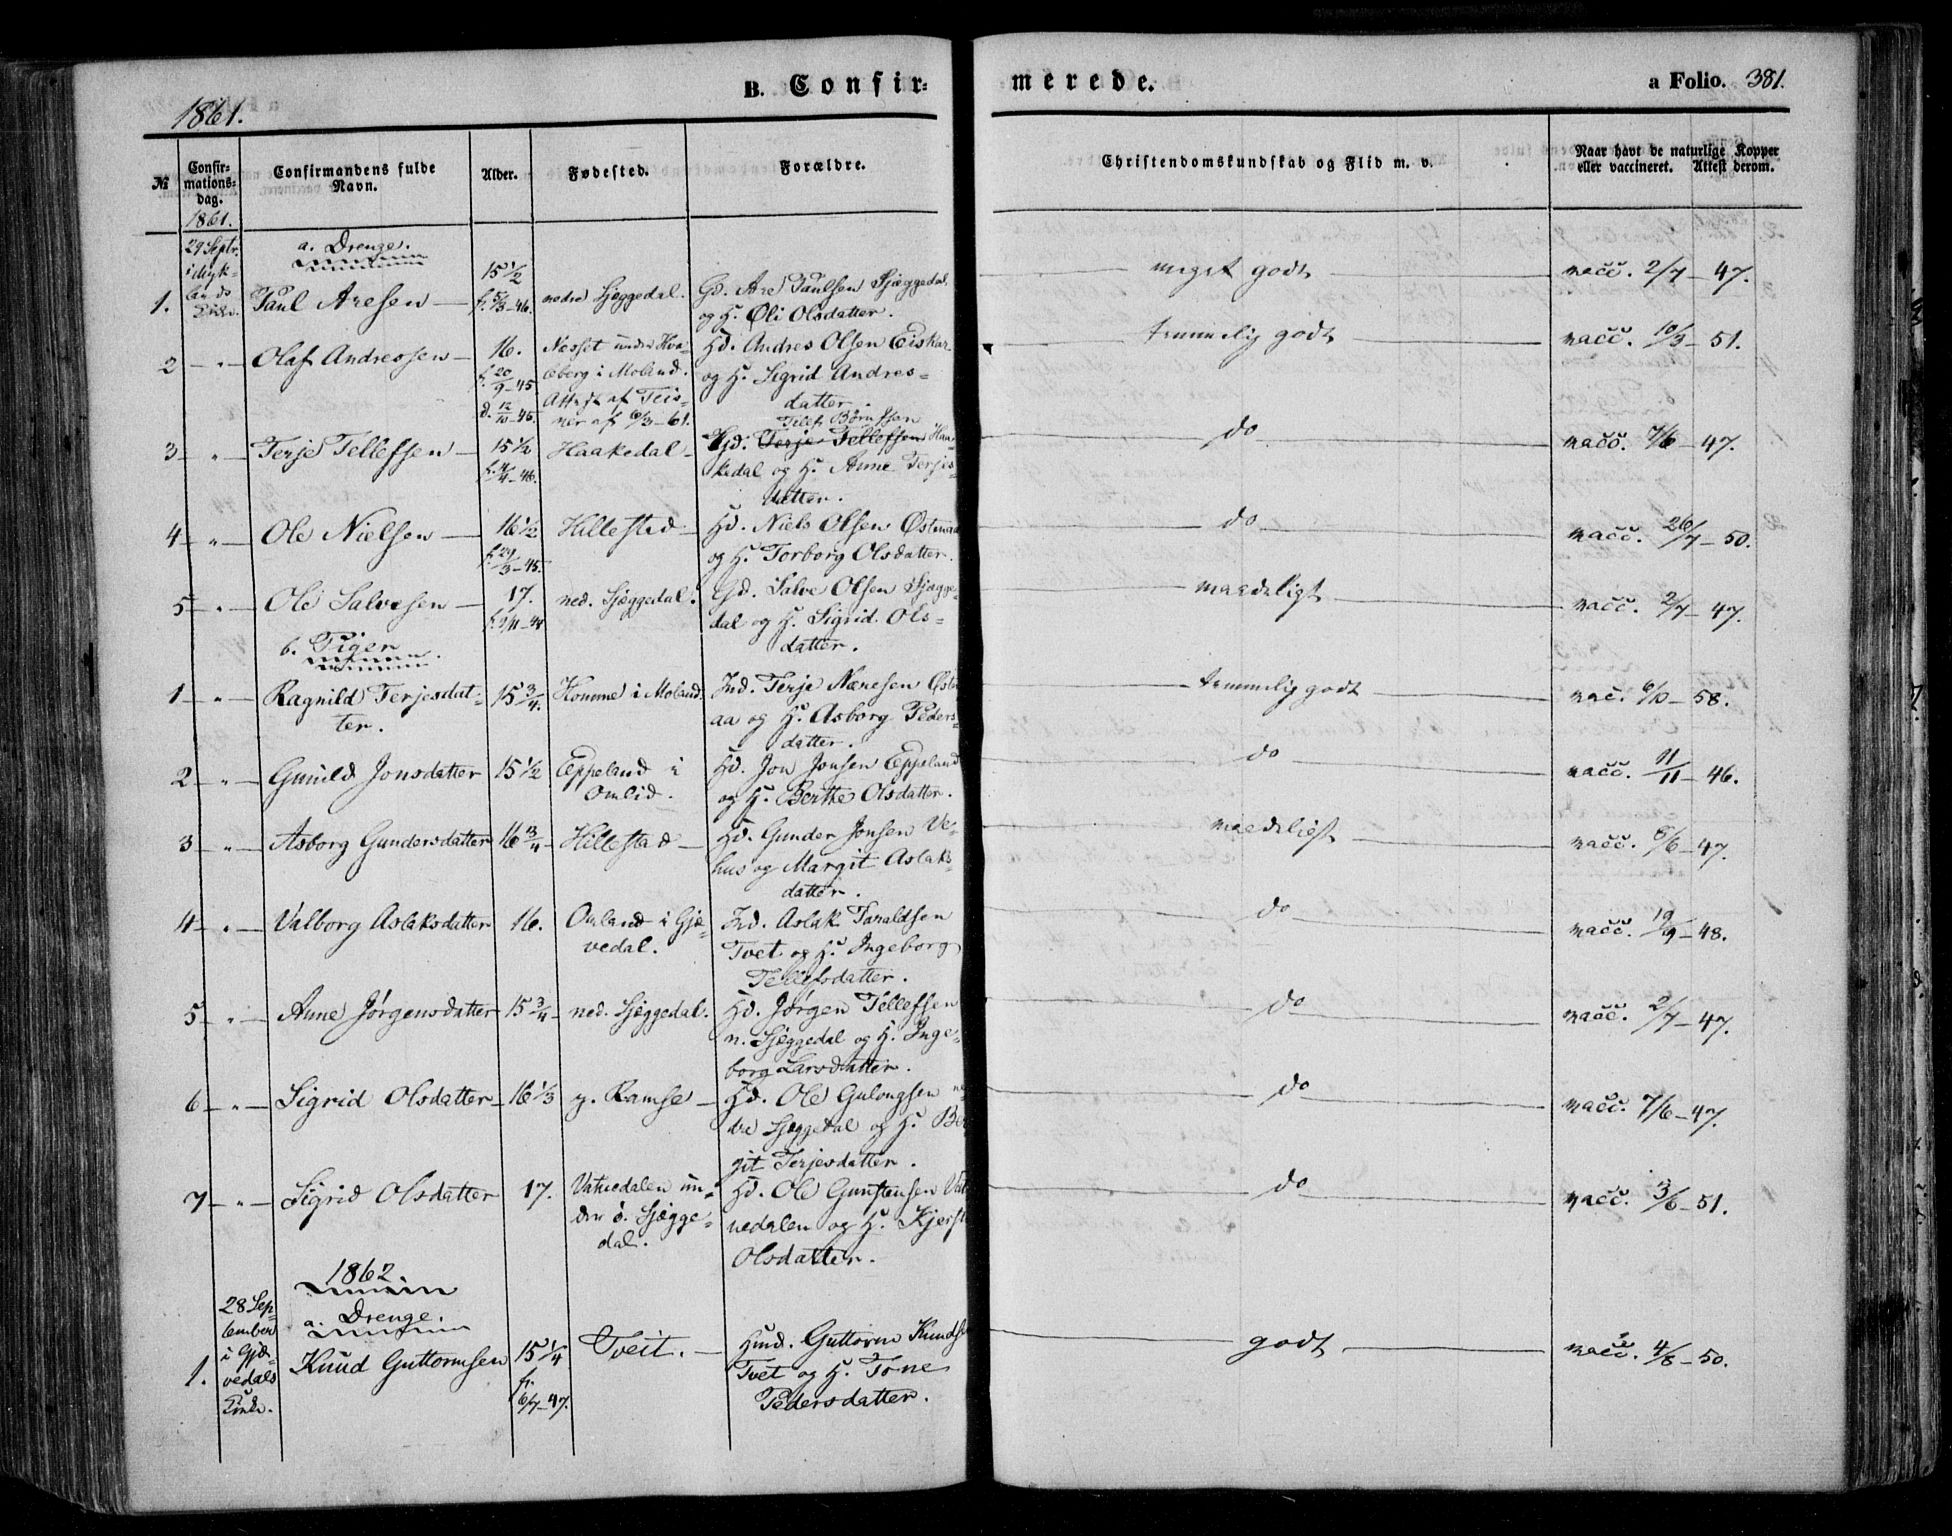 1861.
B. Confir-
merede.
a Folio. 381.
№
Confir-
mations-
dag.
Confirmandens fulde
Navn.
Alder.
Fødested.
Forældre.
Christendomskundskab og Flid m. v.
Naar havt de naturlige Kopper
eller vaccineret. Attest derom.
1861.
29 Septr.
i Myk-
lands
Kirke.
a. Drenge.
1. Paul Aresen 15 1/2
f. 5/3-46. nedre Sjæggedal. Gd. Are Paulsen Sjæggedal
og H. Øli Olsdatter. meget godt vacc. 2/7-47.
2 " Olaf Andressen 16.
f. 20/9-45
d. 12/10-45. Nesset under Hva-
eberg i Moland.
Attest af Teis-
ner af 6/3-61. Hd. Andres Olsen Eiskar
og H. Sigrid Andres-
datter. temmelig godt vacc. 10/3-51.
3 " Terje Tellefsen 15 1/2
f. 4/4-46. Haakedal Tellef Børufsen
Gd. Terje Tellefsen Haa-
kedal og H. Anne Terjes-
datter. do vacc. 7/6-47.
4 " Ole Nielsen 16 1/2
f. 29/3-45. Hillestad Hd. Niels Olsen Østenaa
og H. Torborg Olsdatter. do vacc. 26/7-50.
5 " Ole Salvesen 17.
f. 2/11-44 ned. Sjæggedal. Gd. Salve Olsen Sjægge-
dal og H. Sigrid Ols-
datter. maadeligt vacc. 2/7-47.
b. Piger
1 " Ragnild Terjesdat-
ter. 15 3/4. Homme i Moland. Ind. Terje Næresen Østen
aa og H. Asborg Peders-
datter. temmelig godt vac. 6/10-58.
2 " Gunild Jonsdatter 15 1/2 Eppeland i
Omlid. Hd. Jon Jonsen Eppeland
og H. Berthe Olsdatter. do vacc. 11/11-46.
3 " Asborg Gundersdatter 16 3/4 Hillestad Hd. Gunder Jonsen Ve-
hus og Margit Aslaks-
datter. maadeligt vacc. 8/6-47.
4 " Valborg Aslaksdatter 16. Omland i Gjø-
vedal. Ind. Aslak Tanaldsen
Tvet og H. Ingeborg
Tellefsdatter. do vacc. 19/9-48.
5 " Anne Jørgensdatter 15 3/4 ned. Sjæggedal. Hd. Jørgen Tellefsen
n. Sjæggedal og H. Inge-
borg Larsdatter. do vacc. 2/7-47.
6 " Sigrid Olsdatter 16 1/3 y. Ramse Hd. Ole Gulongsen ne-
dre Sjæggedal og H. Ber-
git Terjesdatter. do vacc. 7/6-47.
7 " Sigrid Olsdatter 17. Vatnedalen un-
der ö. Sjægge-
dal. Hd. Ole Gunstensen Vat-
nedalen og H. Kjersti
Olsdatter. do vacc. 3/6-51.
1862.
28 Sep-
tember
i Gjø-
vedals
Kirke.
a. Drenge.
1. Knud Guttormsen 15 1/4
f.
6/7-47. Tveit. Hmd. Guttorm Knudsen
Tvet og H. Tone
Pedersdatter. godt vacc. 4/8-50.